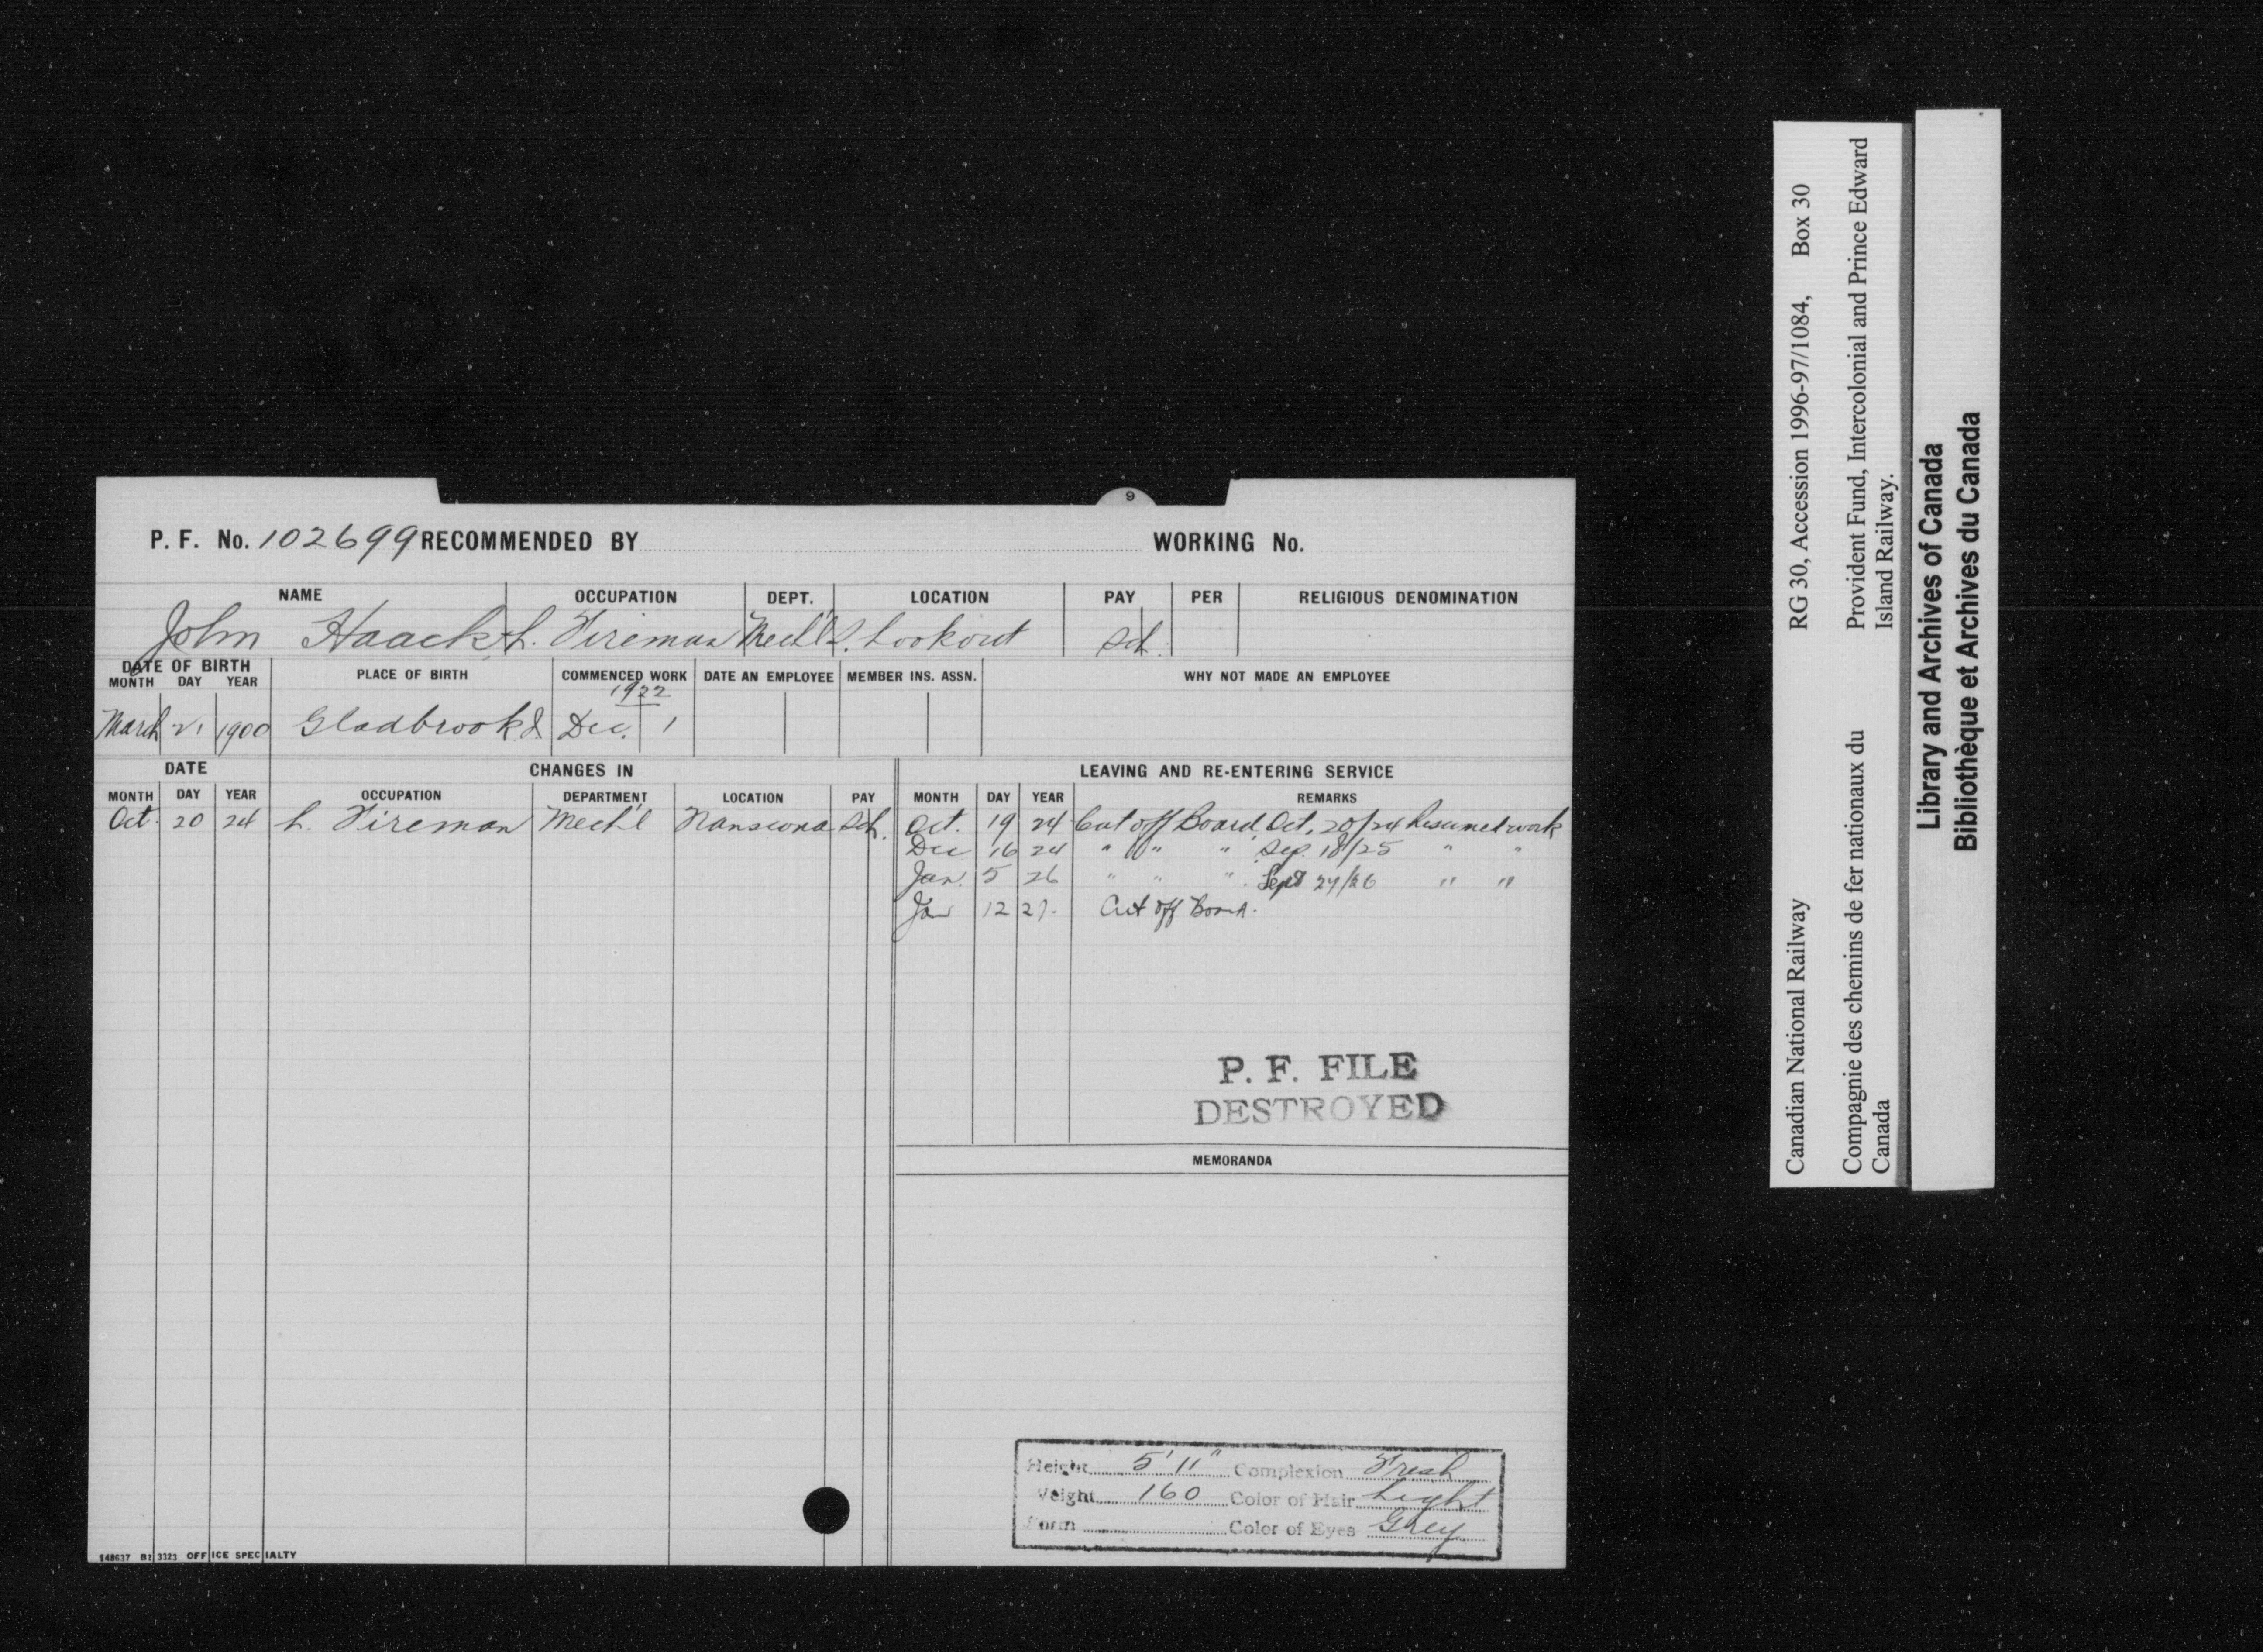 9
P. F. No. 102699 RECOMMENDED BY WORKING No.
NAME OCCUPATION DEPT. LOCATION PAY PER RELIGIOUS DENOMINATION
John Haack L. Fireman Mech'l S. Lookout Sch.
DATE OF BIRTH PLACE OF BIRTH COMMENCED WORK DATE AN EMPLOYEE MEMBER INS. ASSN. WHY NOT MADE AN EMPLOYEE
MONTH DAY YEAR
1922
March 21 1900 Gladbrook Dec. 1
DATE CHANGES IN LEAVING AND RE-ENTERING SERVICE
MONTH DAY YEAR OCCUPATION DEPARTMENT LOCATION PAY MONTH DAY YEAR REMARKS
Oct. 20 24 L. Fireman Mech'l Transcona Sch. Oct. 19 24 Cut off Board, Oct. 20/24 Resumed work
Dec 16 24 " " " Sep. 18/25 " "
Jan. 5 26 " " " Sept 24/26 " "
Jan 12 27. Cut off Board.
P. F. FILE
DESTROYED
MEMORANDA
Height 5' 11" Complexion Fresh
Weight 160 Color of Hair Light
Form Color of Eyes Grey
148637 B2 3323 OFFICE SPECIALTY
Canadian National Railway RG 30, Accession 1996-97/1084, Box 30
Compagnie des chemins de fer nationaux du Provident Fund, Intercolonial and Prince Edward
Canada Island Railway.
Library and Archives of Canada
Bibliothèque et Archives du Canada